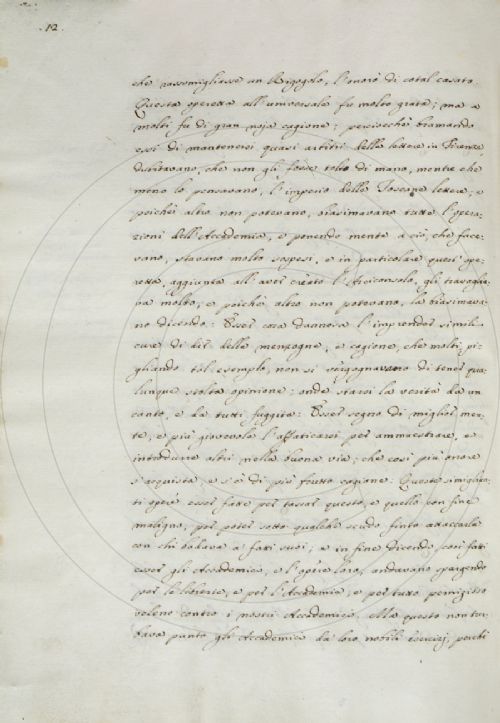 .12.
che rassomigliasse un Bigogolo, l'onorò di cotal casato.
Questa operetta all'universale fu molto grata; ma a
molti fu di gran noja cagione; perciocchè bramando
essi di mantenersi quasi arbitri delle lettere in Firenze,
dubitavano, che non gli fosse tolto di mano, mentre che
meno lo pensavano, l'imperio delle Toscane lettere; e
poichè altro non potevano, biasimavano tutte l'opera-
zioni dell'Accademia, e ponendo mente a ciò, che face-
vano, stavano molto sospesi, e in particolare quest'ope-
retta, aggiunta all'aver creato l'Arciconsolo, gli travaglia-
va molto, e poichè altro non potevano, la biasimava-
no dicendo: Esser cosa dannosa l'imprender simili
cure di dir delle menzogne, e cagione, che molti, pi-
gliando tal esemplo, non si vergognavano di tener qua-
lunque stolta opinione: onde starsi la verità da un
canto, e da tutti fuggita: Esser segno di miglior men-
te, e più giovevole l'affaticarsi per ammaestrare, e
introdurre altri nella buona via; che così più onore
s'acquista, e si è di più frutto cagione. Queste simiglian-
ti opere esser fatte per tassar questo, e quello con fine
maligno, per poter sotto qualche scudo finto attaccarla
con chi badava a' fatti suoi; e in fine dicendo così fatti
esser gli Accademici, e l'opere loro, andavano spargendo
per le librerie, e per l'Accademia, e per tutto pernizioso
veleno contro i nostri Accademici. Ma questo non tur-
bava punto gli Accademici da loro nobili esercizj, perchè